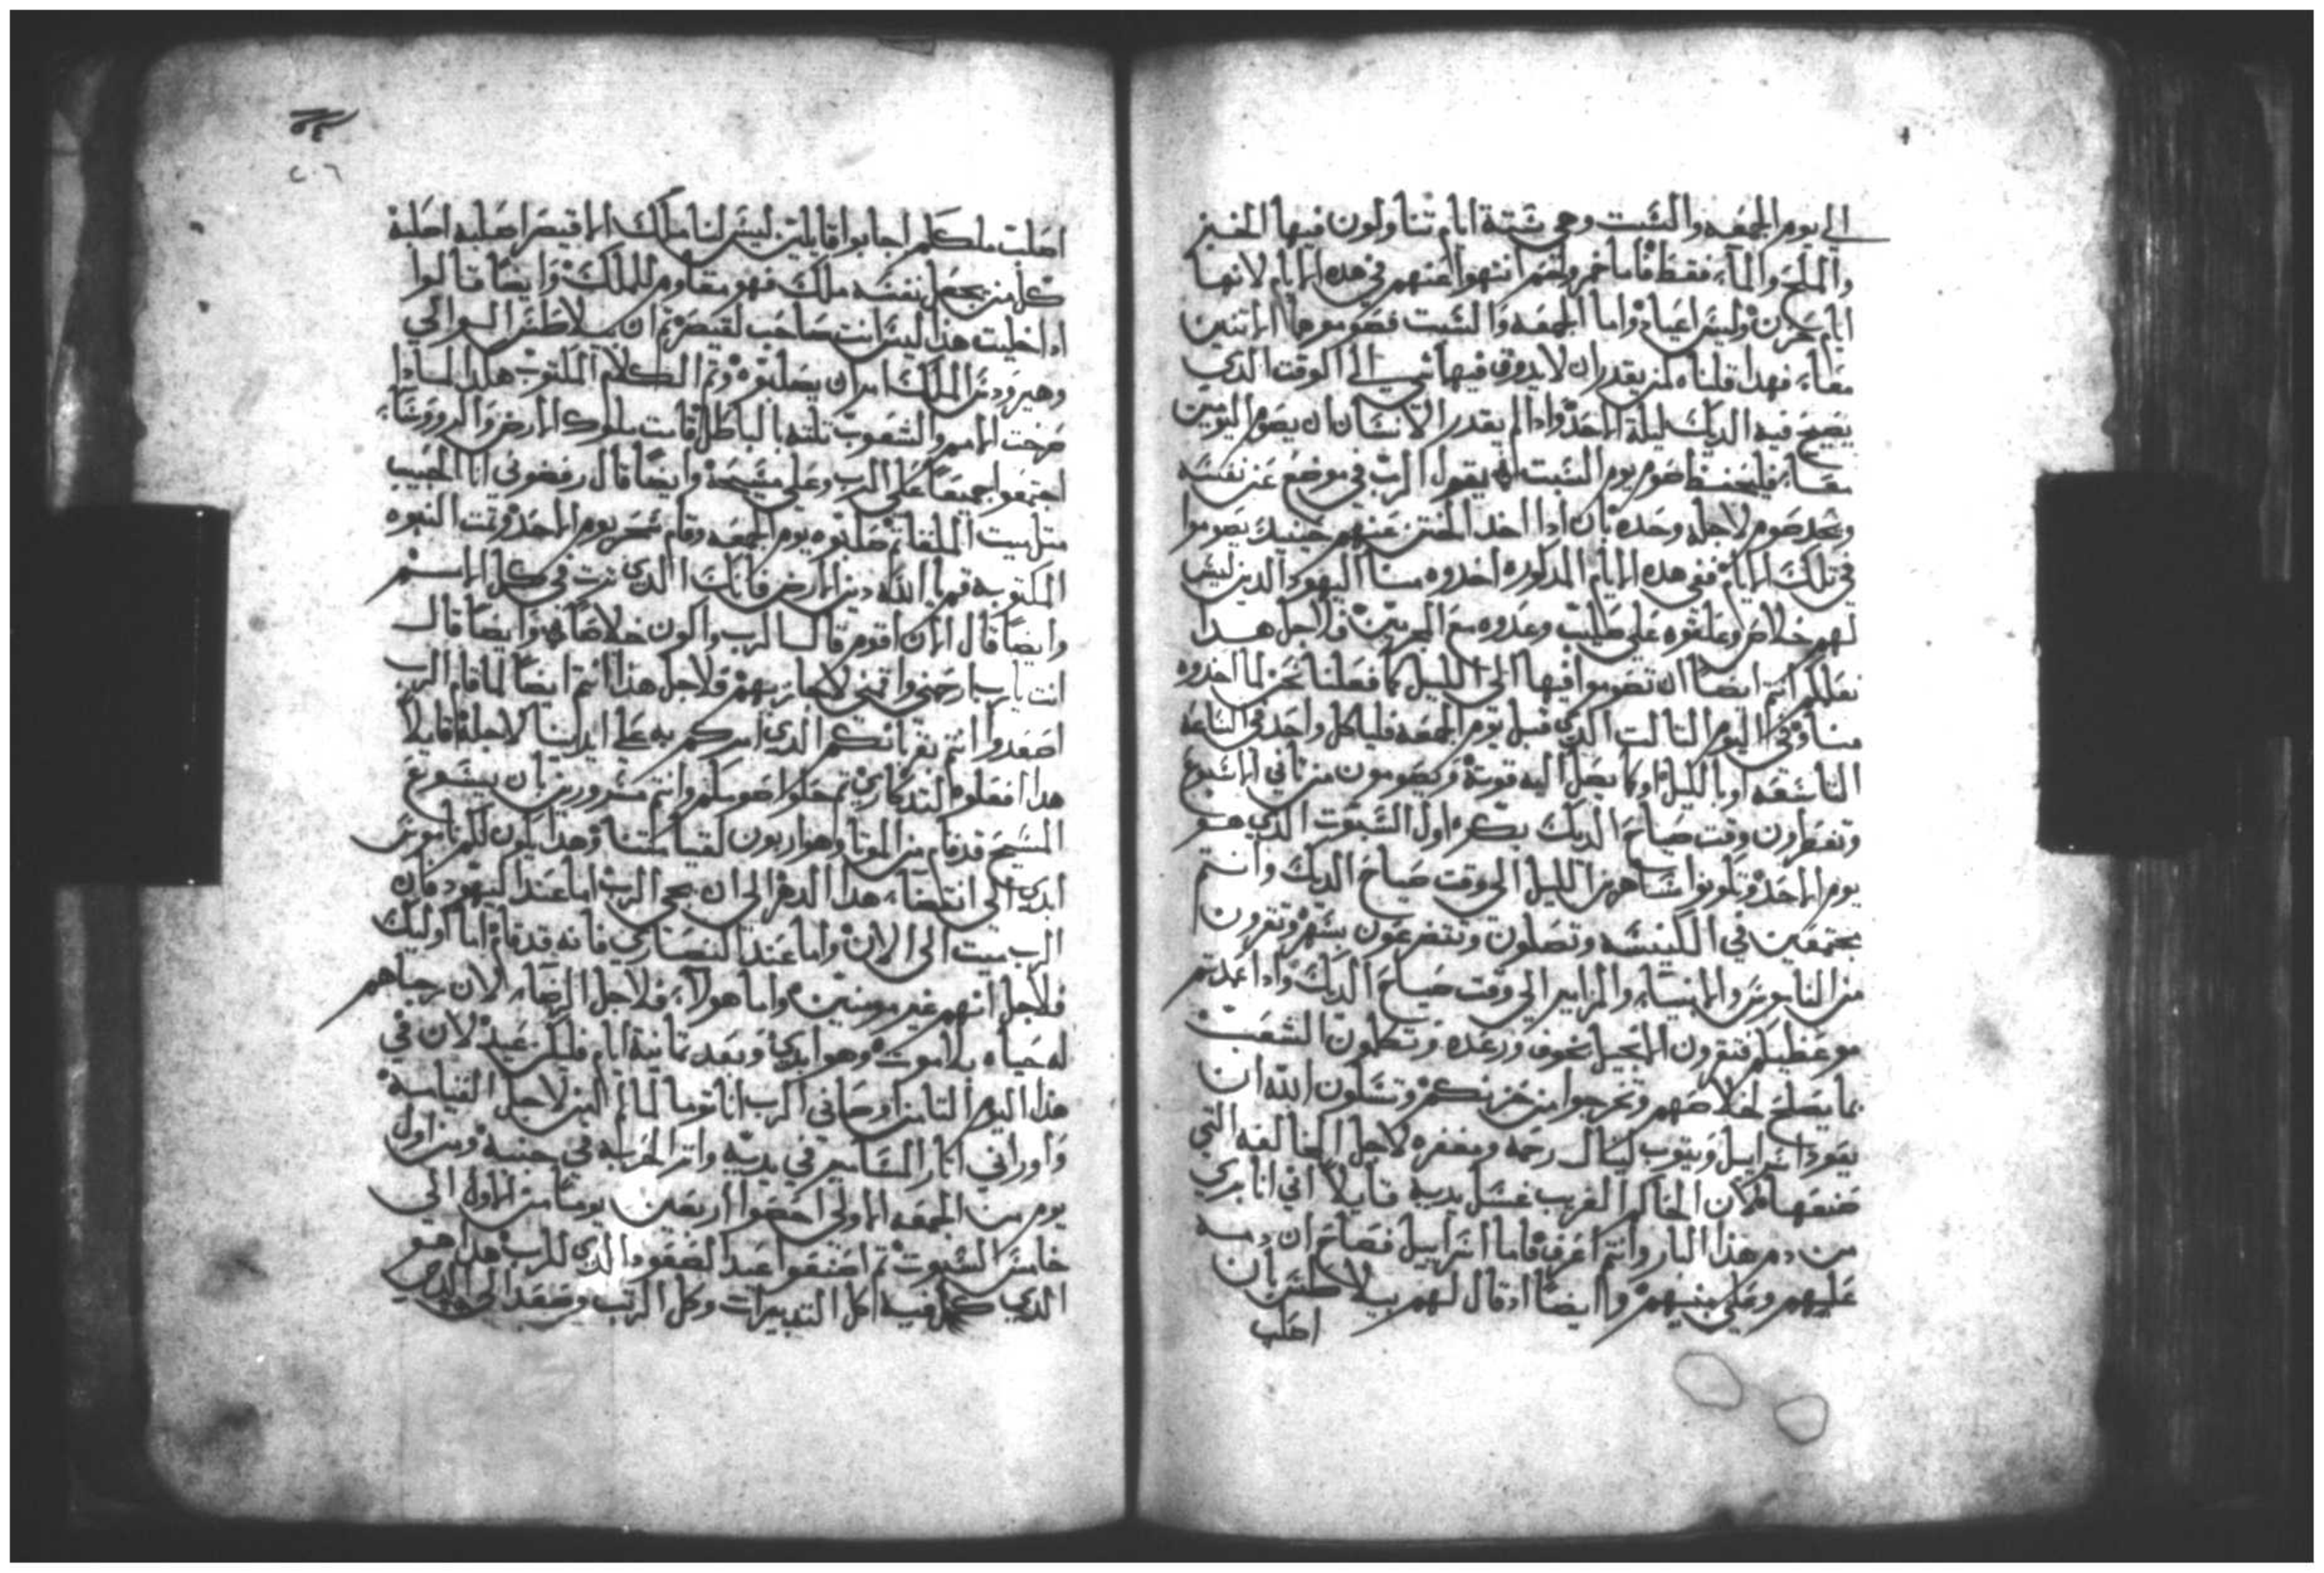 الي يوم الجمعه والسبت وهي ستة ايام تتناولون فيها الخبز
والملح والماء فقط فاما خمر ولحم انتهوا عنهم في هده الايام لانها
ايام حزن وليس اعياد واما الجمعه والسبت فصوموهما الاتنين
معاً فهدا قلناه لمن يقدر ان لا يدوق فيها شي الي الوقت الدي
يصيح فيه الديك ليلة الاحد وادا لم يقدر الانسان ان يصوم اليومين
معاً فليحفظ صوم يوم السبت يقول الرب في موضع عن نفسه
لاجله وحده بان ادا اخد الختن عنهم حينيد يصوموا
في تلك الايام ففي هده الايام المدكوره اخدوه منا اليهود الدين ليس
لهم خلاص وعلقوه علي صليب وعدوه مع المجرمين فلاجل هدا
انتم ايضاً ان تصوموا فيها الي الليل كما فعلنا نحن لما اخدوه
منا وفي اليوم التالت الدي قبل يوم الجمعه فلياكل واحد في الساعه
التاسعه او بالليل او كما يصل اليه قوته ويصومون من تاني الاسبوع
وتفطرون وقت صياح الديك بكره اول السبوت الدي هو
يوم الاحد وتكونوا ساهرين الليل الي وقت صياح الديك وانتم
مجتمعين في الكنيسه وتصلون وتتضرعون بسهر وتقرون
من الناموس والانبياء والمزامير الي وقت صياح الديك وادا عمدتم
موعظيكم فتقرون الانجيل بخوف ورعده وتكلمون الشعب
بما يصلح لخلاصهم وتخرجوا من حزنكم وتسلون الله ان
يعود اسراييل ويتوب لينال رحمه ومغفره لاجل المخالفه التي
صنعها لان الحاكم الغريب غسل يديه قايلاً اني انا بري
من دم هدا البار وانتم اعرف فاما اسراييل فصاح ان دمه
عليهم وعلي بنيهم وايضاً اد قال لهم بيلاطس بان
اصلب
٢٠٦
اصلب ملككم اجابوا قايلين ليس لنا ملك الا قيصر اصلبه اصلبه
كل من يجعل نفسه ملك فهو مقاوم للملك وايضاً قالوا
ادا خليت هدا ليس انت صاحب لقيصر تم ان بيلاطس الوالي
وهيرودس الملك امر ان يصلبوه وتم الكلام المكتوب هكدا لمادا
ضجت الامم والشعوب تلته بالباطل قامت ملوك الارض والرووساء
اجتمعوا جميعاً علي الرب وعلي مسيحه وايضاً قال رفضوني انا الحبيب
متل ميت الملقا تم صلبوه يوم الجمعه وقام سحر يوم الاحد وتمت النبوه
المكتوبه قم يا الله دين الارض فانك انت الدي ترت في كل الامم
وايضاً قال الان اقوم قال الرب واكون خلاصاً وايضاً قال
انت يارب ارحمني واقمني لاجازيهم فلاجل هدا انتم ايضاً لما قام الرب
اصعدوا انتم قربانكم الدي امركم به علي ايدينا لاجله قايلاً
هدا افعلوه لتدكاري تم حلوا صومكم وانتم مسرورين بان يسوع
المسيح قد قام من الموتا وهو اربون لقيامتنا وهدا يكون لكم ناموس
ابدي الي انقضاء هدا الدهر الي ان يجي الرب اما عند اليهود فان
الرب ميت الي الان واما عند النصاري فانه قد قام اما اوليك
فلاجل انهم غير مومنين واما هولاء فلاجل الرجاء لان رجاهم
له حياه بلا موت وهو ابدي وبعد تمانية ايام فليكن عيد لان في
هدا اليوم التامن اوصاني الرب انا توما لما لم اومن لاجل القيامه
واوراني اتار المسامير في يديه واتر الحربه في جنبه ومن اول
يوم من الجمعه الاولي احصوا اربعين يوماً من الاول الي
خامس السبوت تم اصنعوا عيد الصعود الدي للرب هدا هو
الدي كمل فيه كل التدبيرات وكل الرتب وصعد الي الدي